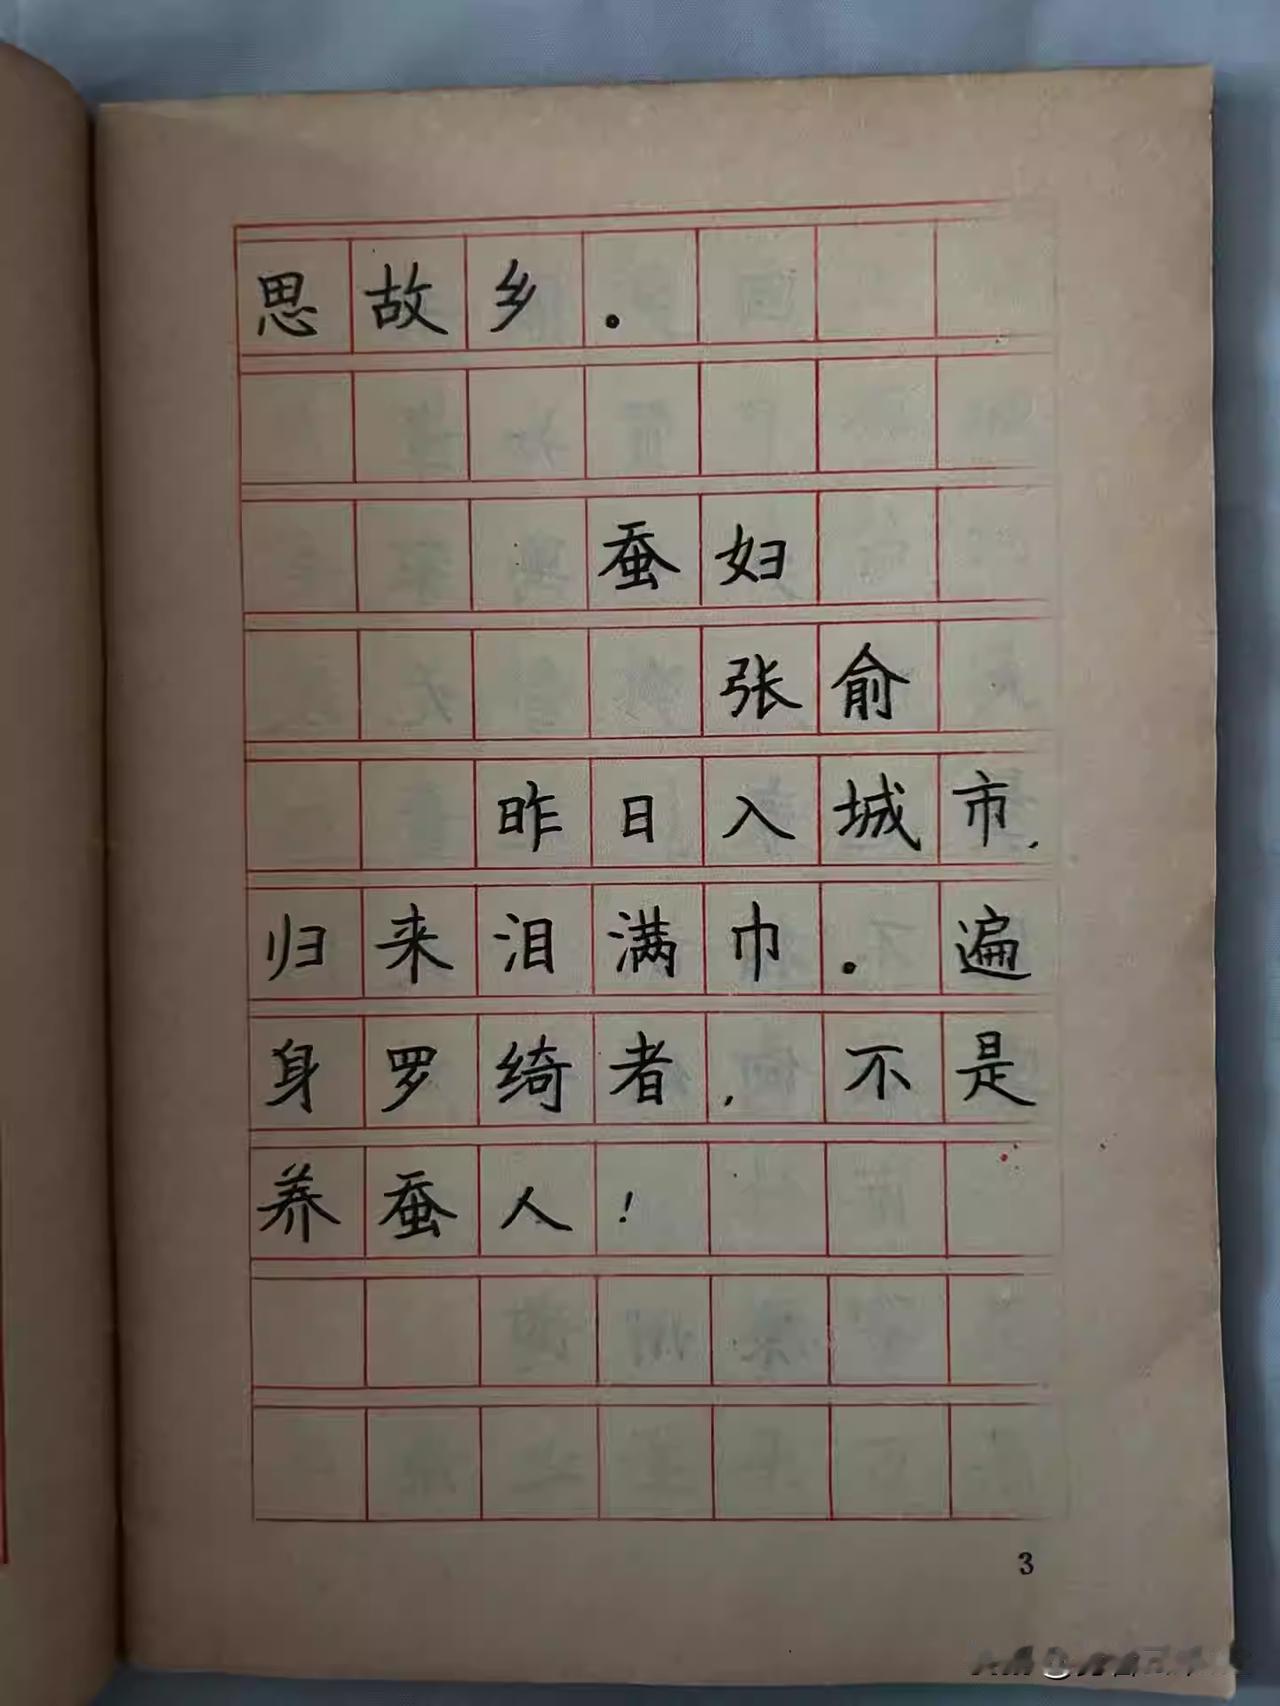 思故乡。
蚕妇
张俞
昨日入城市，
归来泪满巾。遍
身罗绮者，不是
养蚕人！
3